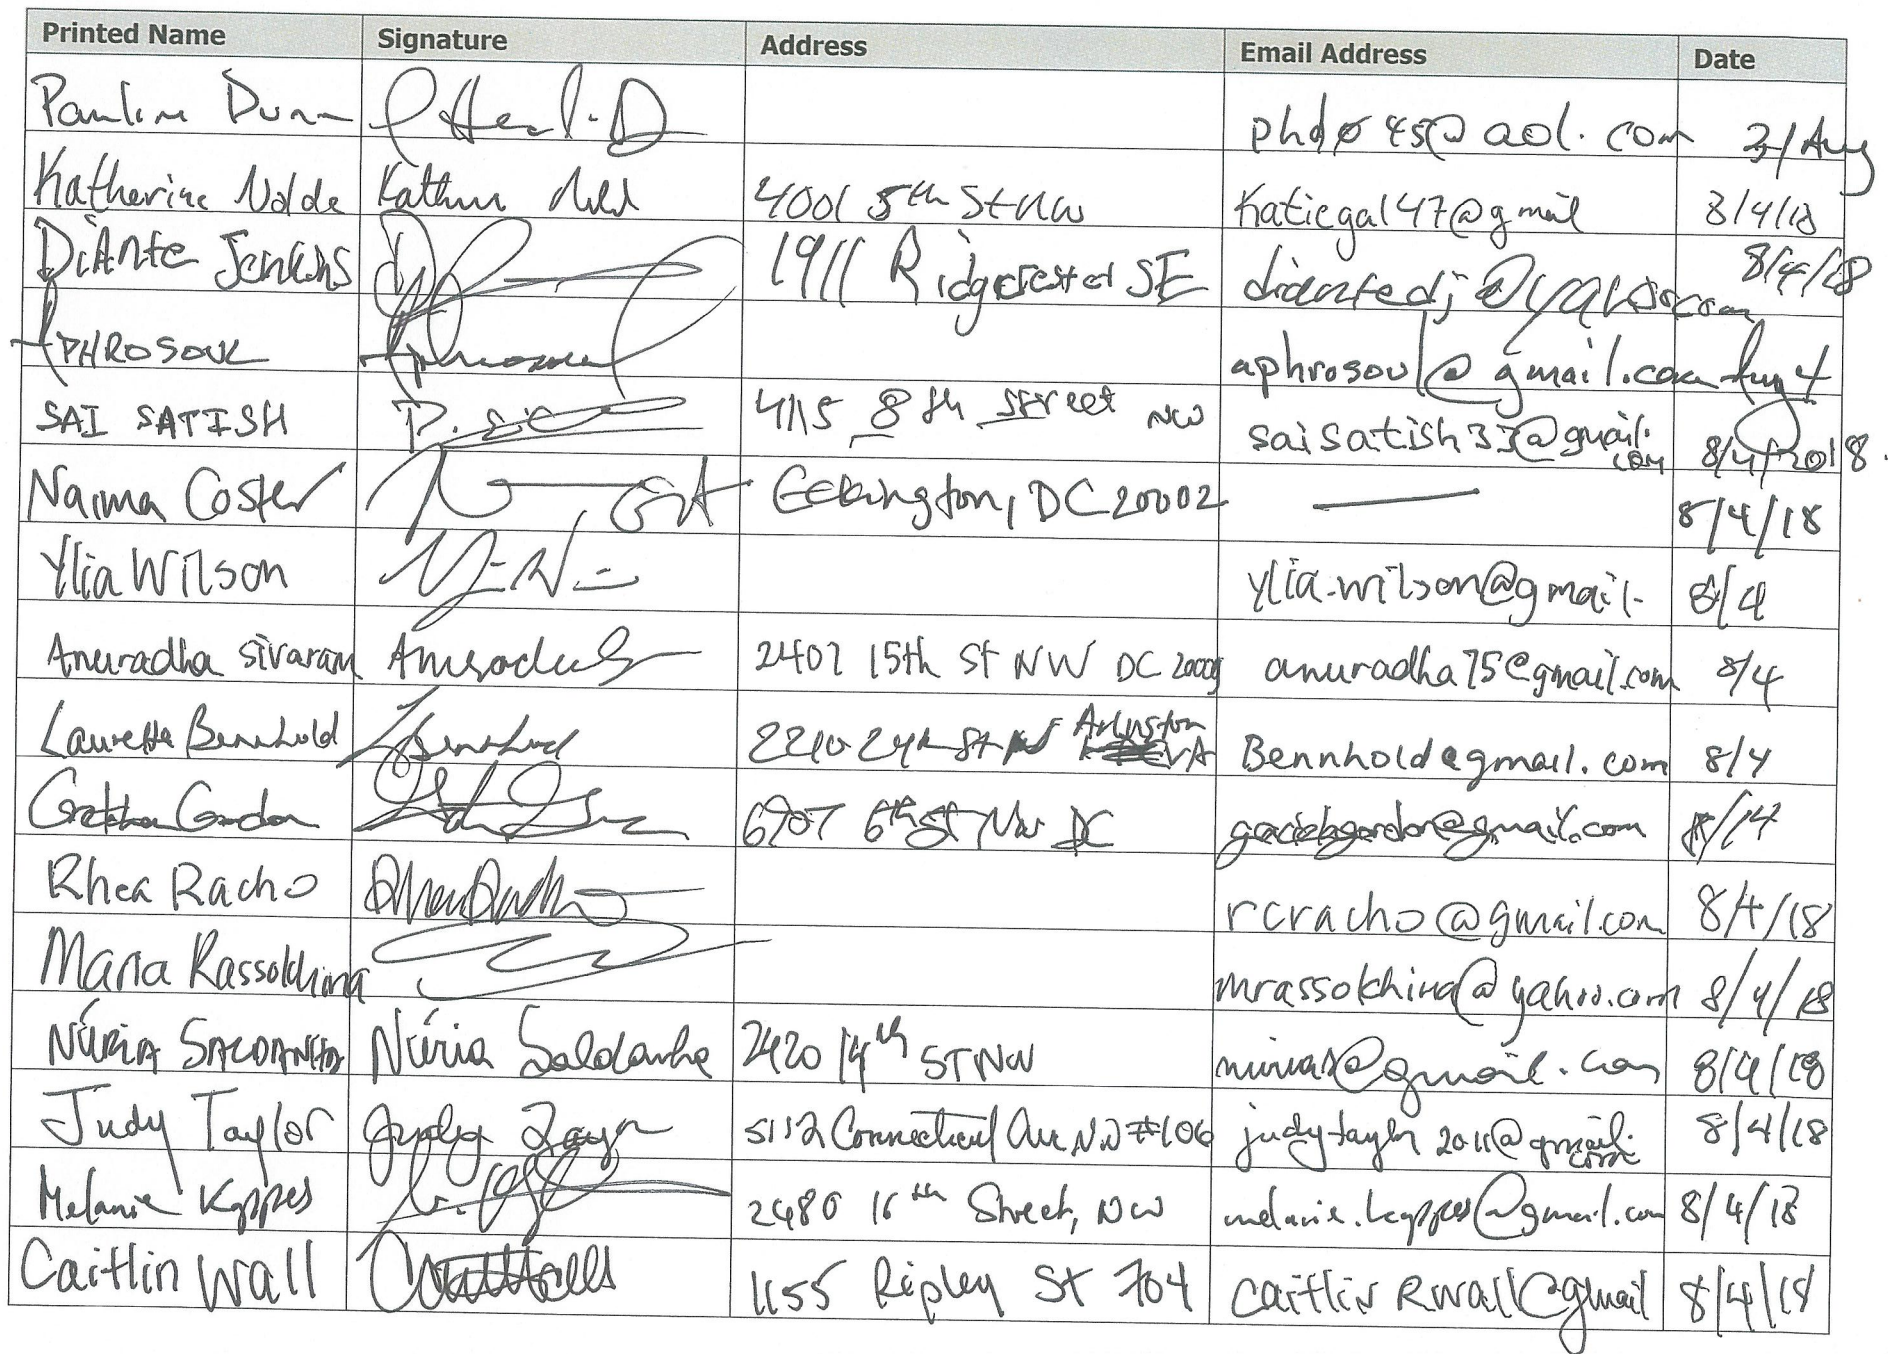 Printed Name Signature Address Email Address Date
Pauline Dunn phd045@aol.com 3/Aug
Katherine Nolde 4001 5th St NW Katiegal47@gmail 8/4/18
DiAnte Jenkins 1911 SE 8/4/18
APHROSOUL Aphrosoul aphrosoul@gmail.com Aug 4
SAI SATISH P. Sai 4115 8th street NW saisatish33@gmail.com 8/4/2018.
Naima Coster Eckington, DC 20002 — 8/4/18
Ylia Wilson ylia.wilson@gmail. 8/4
Anuradha Sivaram 2407 15th St NW DC 20009 anuradha75@gmail.com 8/4
Lauretta Bennhold Bennhold 24th St Arlington VA Bennhold@gmail.com 8/4
Gordon 6907 6th St NW DC
Rhea Racho Rhea Racho rcracho@gmail.com 8/4/18
Maria Rassokhina mrassokhina@yahoo.com 8/4/18
NÚRIA SALDANHA Núria Saldanha 2420 14th ST NW 8/4/18
Judy Taylor Judy Taylor 5112 Connecticut Ave NW #106 judytaylor2011@gmail.com 8/4/18
Melanie Kappes 2480 16th Street, NW melanie.kappes@gmail.com 8/4/18
Caitlin Wall 1155 Ripley St 704 CaitlinRWall@gmail 8/4/18